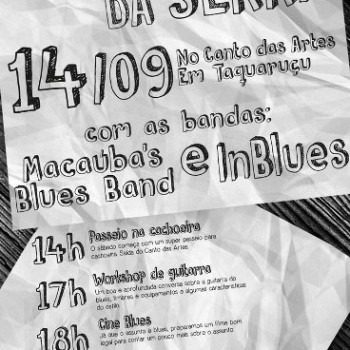 DA SERRA
14/09
No Canto das Artes
Em Taquaruçu
com as bandas:
Macaúba's
Blues Band
e InBlues
14h
Passeio na cachoeira
O sábado começa com um super passeio para
cachoeira. Saída do Canto das Artes.
17h
Workshop de guitarra
Um boa e aprofundada conversa sobre a guitarra do
blues, timbres e equipamentos e algumas características
do estilo.
18h
Cine Blues
Já que o assunto é blues, preparamos um filme bem
legal para contar um pouco mais sobre o assunto.